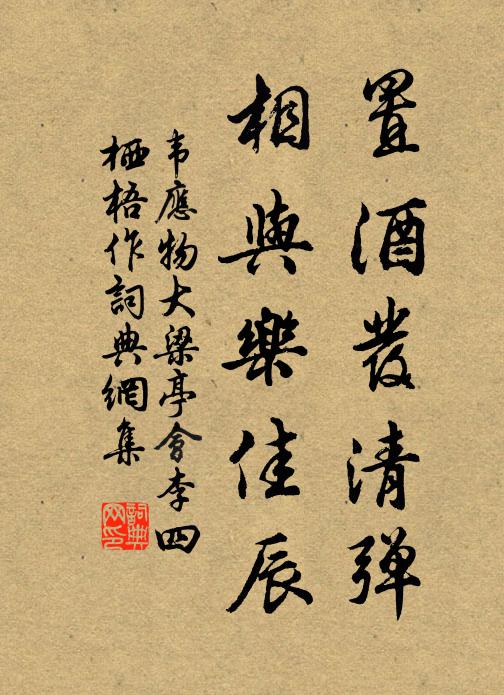 置酒發清彈
相與樂佳辰
韦應物大梁亭會李四
栖梧作詞典網集
詞典
网印